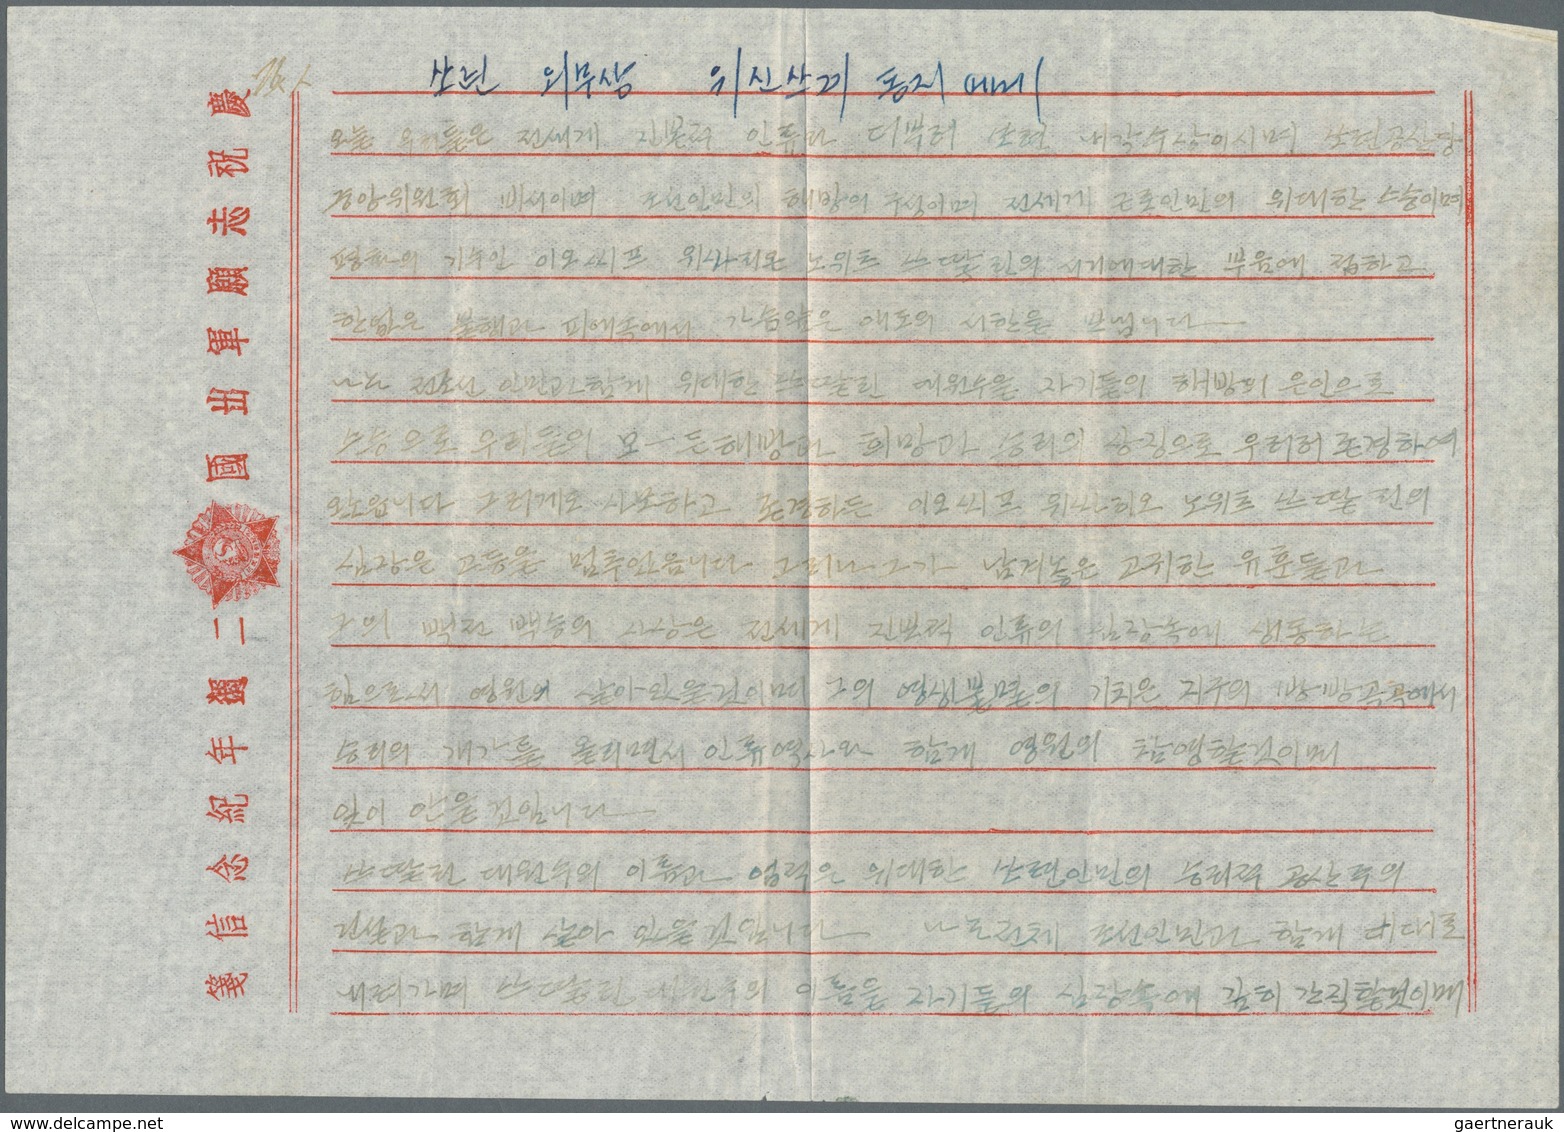 쏘련 외무상 위신쓰끼 동지 에게
오늘 우리들은 전세게 진보적 인류와 더부러 쏘련 내각수상이시며 쏘련공산당
중앙위원회 비서이며 조선인민의 해방의 구성이며 전세게 근로인민의 위대한 스승이며
평화의 기수인 이오씨프 위싸리온 노위츠 쓰딸린의 서거에대한 부음에 접하고
한없은 불행과 피에속에서 가슴앞은 애도의 서한을 보냅니다
나는 전조선 인민과함게 위대한 쓰딸린 대원수을 자기들의 해방의 은인으로
스승으로 우리들의 모ー든 해방과 희망과 승리의 상징으로 우러러 존경하여
왔습니다 그러게도 사모하고 존경하든 이오씨프 위싸리오 노위츠 쓰딸린의
심장은 고동을 멈추었읍니다 그러나 그가 남겨놓은 고귀한 유훈들과
그의 백전 백승의 사상은 전세게 진보적 인류의 심장속에 생동하는
힘으로서 영원이 살아있을것이며 그의 영생불멸의 기치은 지구의 방방곡곡에서
승리의 개가를 올리면서 인류역사와 함게 영원이 참영할것이며
있이 않을것입니다
쓰딸린 대원수의 이름과 업적은 위대한 쏘련인민의 승리적 공산주의
건설과 함게 살아 있을것입니다 나는전체 조선인민과 함게 대대로
내려가며 쓰딸린 대원수의 이름을 자기들의 심장속에 깊히 간직할것이며
慶祝志願軍出國二週年紀念信箋